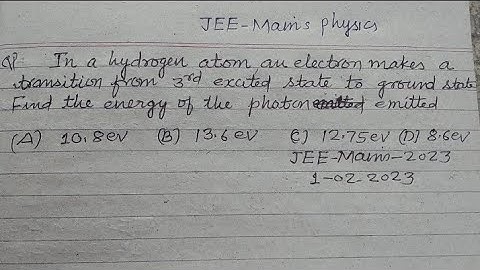 JEE-Mains physics
Q? In a hydrogen atom an electron makes a
transition from 3rd excited state to ground state
Find the energy of the photon emitted emitted
(A) 10.8ev (B) 13.6ev C) 12.75ev (D) 8.6ev
JEE-Mains-2023
1-02-2023